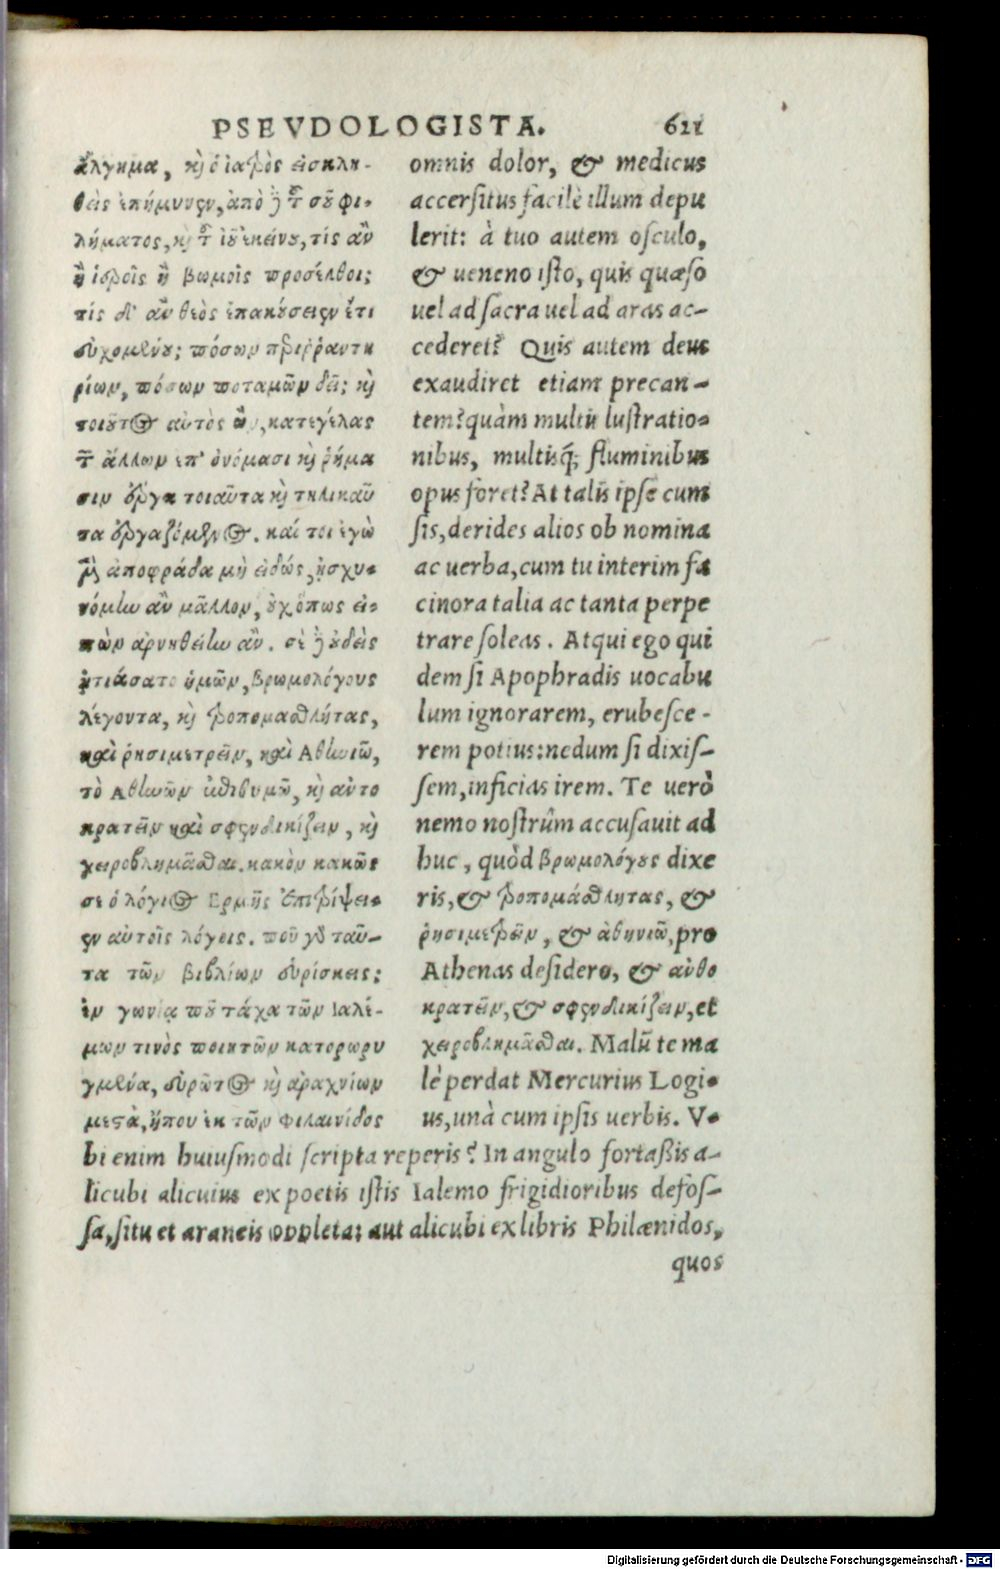 PSEVDOLOGISTA. 611
ἄλγημα, κὶ ὁ ἰατρὸς εἰσκλη-
θεὶς ἐπήμυνεν, ἀπὸ ϳ τ σοῦ φι-
λήματος, κὶ τ ἰοῦ ἐκείνου, τίς ἂν
ἢ ἱεροῖς ἢ βωμοῖς προσέλθοι;
τίς δ' ἂν θεὸς ἐπακούσειεν ἔτι
εὐχομένου; πόσων περιρραντη
ρίων, πόσων ποταμῶν δεῖ; κὶ
τοιοῦτος αὐτὸς ὢν, κατεγέλας
τ ἄλλων ἐπ' ὀνόμασι κὶ ῥήμα
σιν ἔργα τοιαῦτα κὶ τηλικαῦ
τα ἐργαζόμενος. καί τοι ἐγὼ
μ ἀποφράδα μὴ εἰδώς, ᾐσχυ-
νόμην ἂν μᾶλλον, οὐχ ὅπως εἰ-
πὼν ἀρνηθείην ἄν. σὲ ϳ οὐδεὶς
ᾐτιάσατο ἡμῶν, βρωμολόγους
λέγοντα, κὶ τροπομάσθλητας,
καὶ ῥησιμετρεῖν, καὶ Ἀθηνιῶ,
τὸ Ἀθηνῶν ἐπιθυμῶ, κὶ ἀνθο
κρατεῖν καὶ σφενδικίζειν, κὶ
χειροβλημᾶσθαι. κακὸν κακῶς
σε ὁ λόγιος Ερμῆς ἐπιτρίψει-
εν αὐτοῖς λόγοις. ποῦ γὸ ταῦ-
τα τῶν βιβλίων εὑρίσκεις;
ἐν γωνίᾳ που τάχα τῶν Ιαλέ-
μων τινὸς ποιητῶν κατορωρυ
γμένα, εὐρῶτος κὶ ἀραχνίων
μεστὰ, ἤπου ἐκ τῶν Φιλαινίδος
omnis dolor, & medicus
accersitus facilè illum depu
lerit: à tuo autem osculo,
& ueneno isto, quis quæso
uel ad sacra uel ad aras ac-
cederet? Quis autem deus
exaudiret etiam precan-
tem? quàm multis lustratio-
nibus, multisq; fluminibus
opus foret? At talis ipse cum
sis, derides alios ob nomina
ac uerba, cum tu interim fa
cinora talia ac tanta perpe
trare soleas. Atqui ego qui
dem si Apophradis uocabu
lum ignorarem, erubesce-
rem potius: nedum si dixis-
sem, inficias irem. Te uerò
nemo nostrûm accusauit ad
huc, quòd βρωμολόγους dixe
ris, & τροπομάσθλητας, &
ῥησιμετρεῖν, & ἀθηνιῶ, pro
Athenas desidero, & ἀνθο
κρατεῖν, & σφενδικίζειν, et
χειροβλημᾶσθαι. Malũ te ma
lè perdat Mercurius Logi-
us, unà cum ipsis uerbis. V-
bi enim huiusmodi scripta reperis? In angulo fortaßis a-
licubi alicuius ex poetis istis Ialemo frigidioribus defos-
sa, situ et araneis oppleta: aut alicubi ex libris Philænidos,
quos
Digitalisierung gefördert durch die Deutsche Forschungsgemeinschaft - DFG